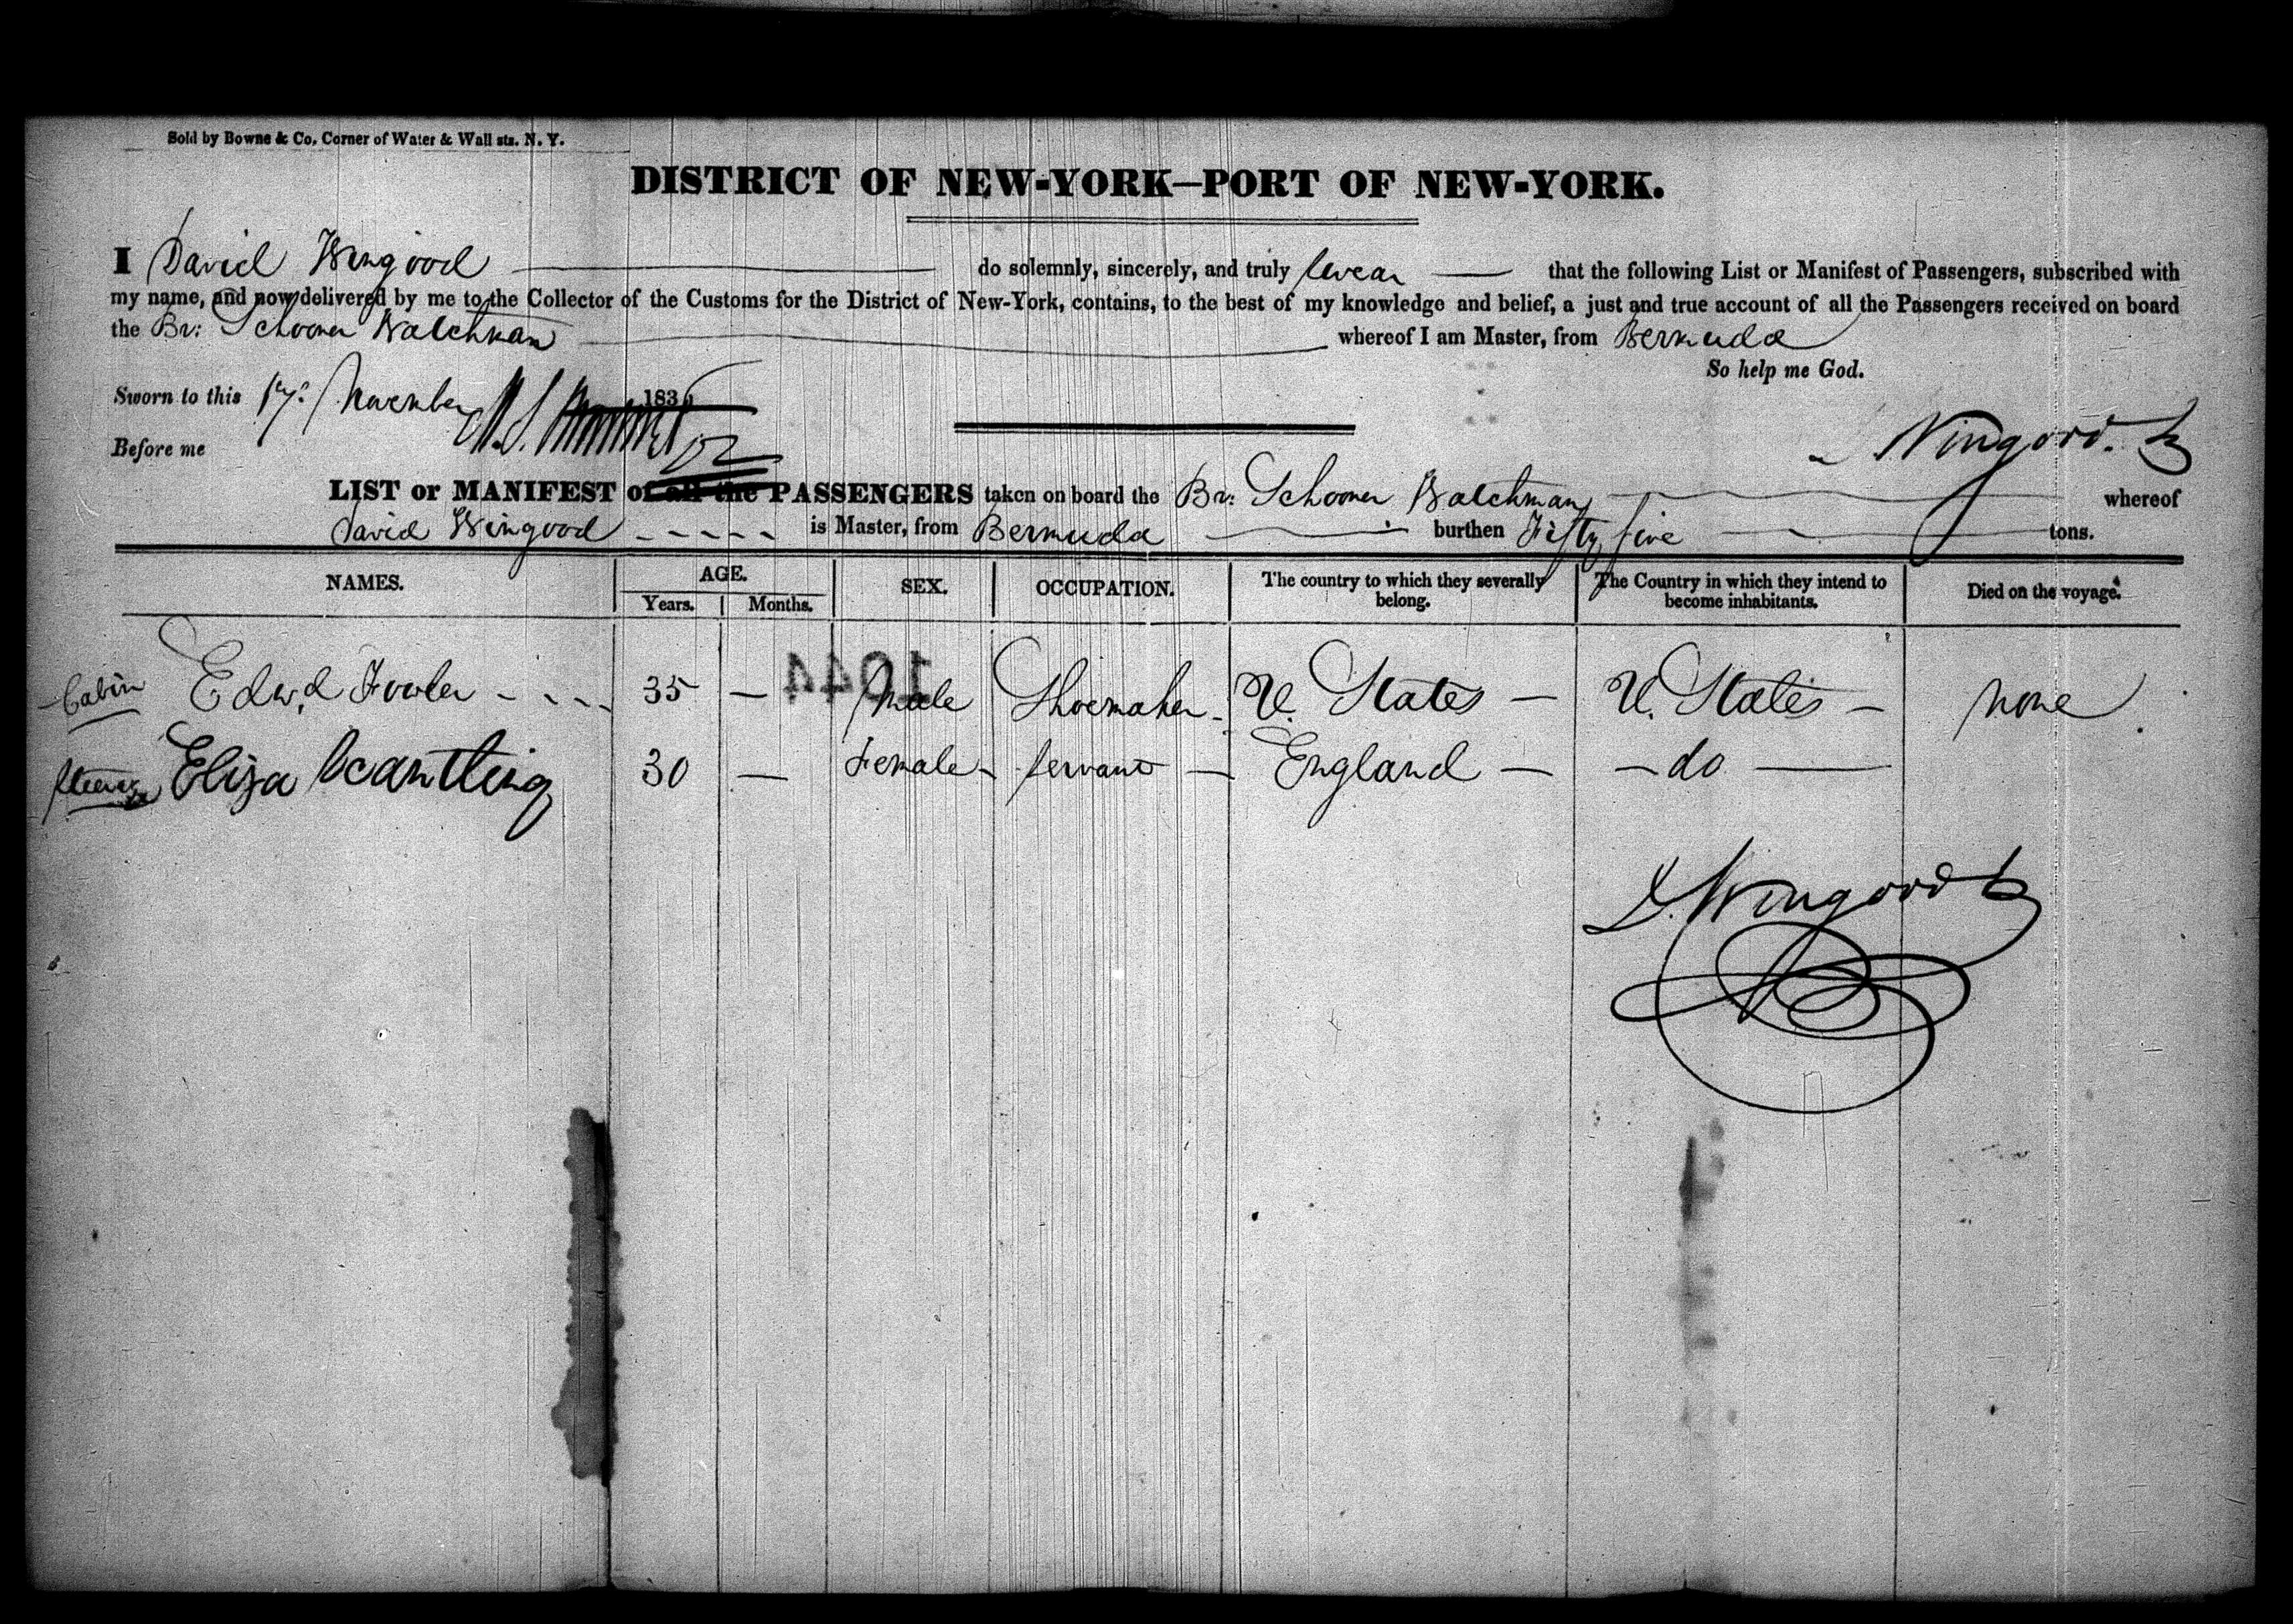 Sold by Bowne & Co. Corner of Water & Wall sts. N. Y.
DISTRICT OF NEW-YORK—PORT OF NEW-YORK.
I David Wingood do solemnly, sincerely, and truly swear that the following List or Manifest of Passengers, subscribed with
my name, and now delivered by me to the Collector of the Customs for the District of New-York, contains, to the best of my knowledge and belief, a just and true account of all the Passengers received on board
the Br: Schooner Watchman whereof I am Master, from Bermuda
So help me God.
Sworn to this 17: November 183
Before me
Wingood
LIST or MANIFEST of all the PASSENGERS taken on board the Br: Schooner Watchman whereof
David Wingood is Master, from Bermuda burthen Fifty five tons.
NAMES. AGE. SEX. OCCUPATION. The country to which they severally belong. The Country in which they intend to become inhabitants. Died on the voyage.
Years. Months.
Cabin Edwd Fowler 35 — Male Shoemaker U. States — U. States — None
Steerage Eliza Scantling 30 — Female servant — England — — do —
1044
D. Wingood